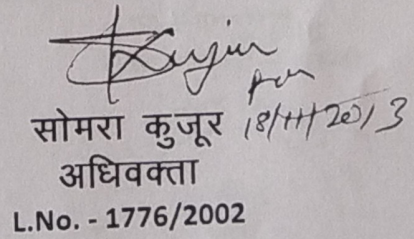 सोमरा कुजूर 18/11/2013
अधिवक्ता
L.No. - 1776/2002